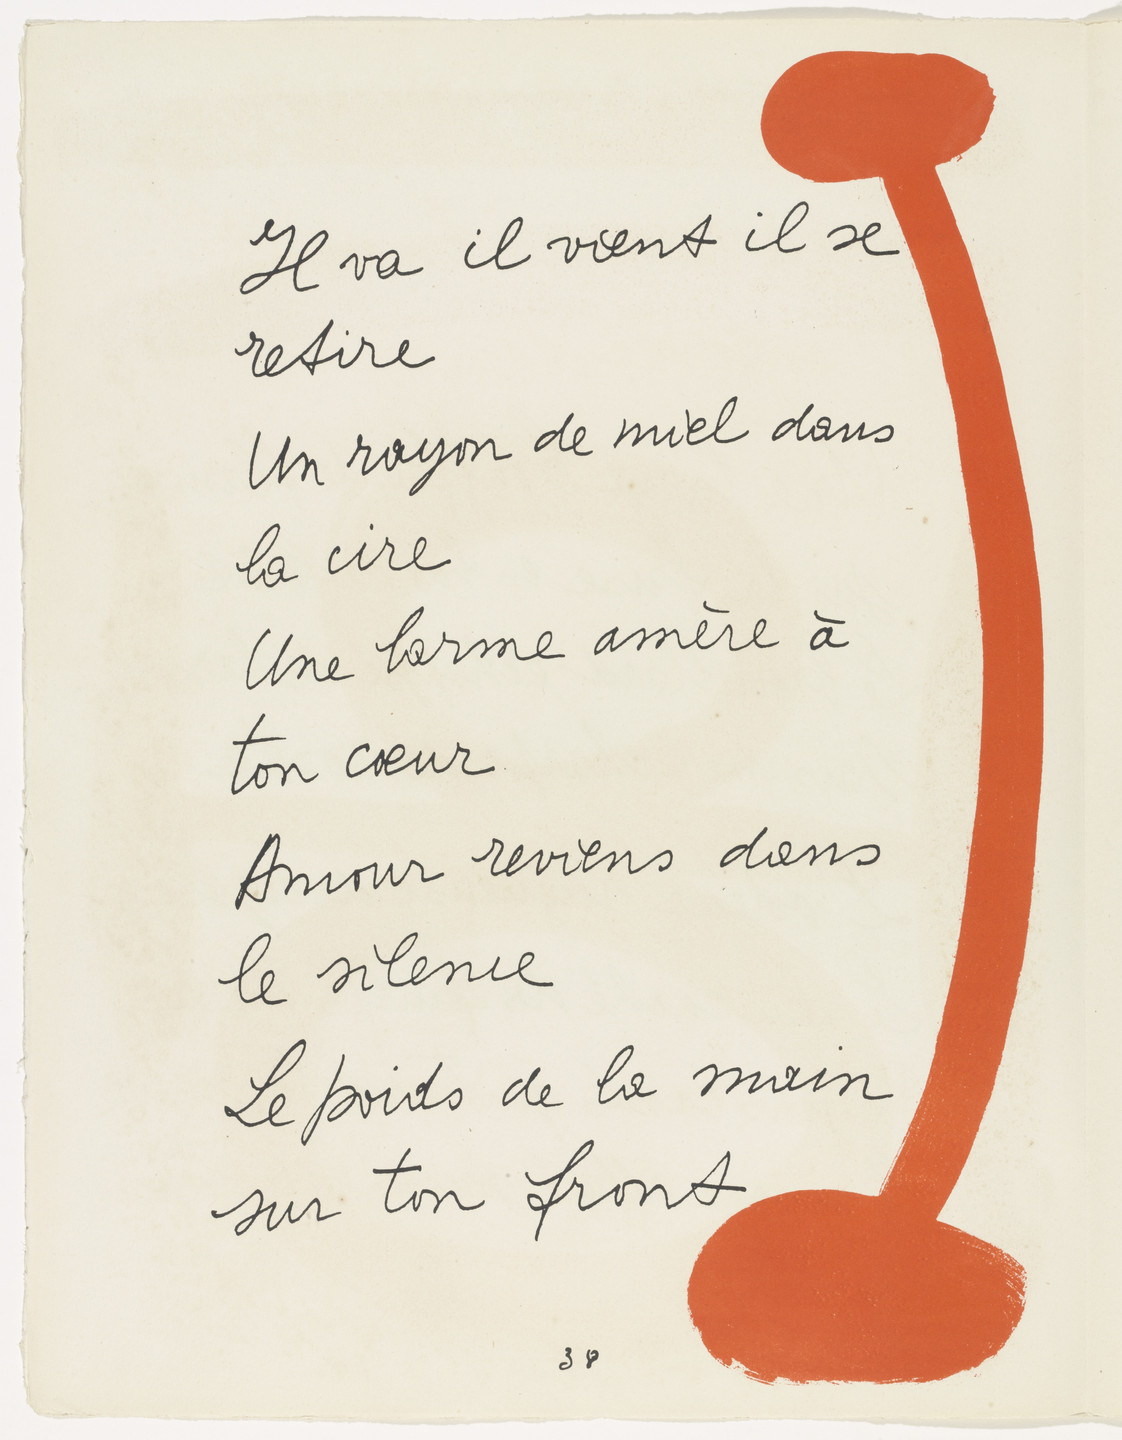 Il va il vient il se
retire
Un rayon de miel dans
la cire
Une larme amère à
ton cœur
Amour reviens dans
le silence
Le poids de la main
sur ton front
38